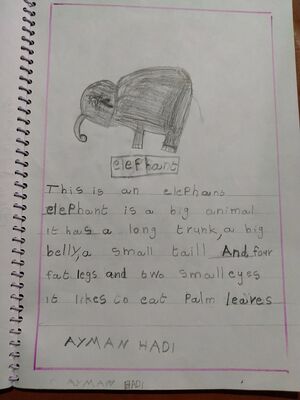 elephant
This is an elephans
elephant is a big animal
it has a long trunk, a big
belly, a small taill And four
fat legs and two small eyes
it likes to eat Palm leaves
AYMAN HADI
AYMAN HADI